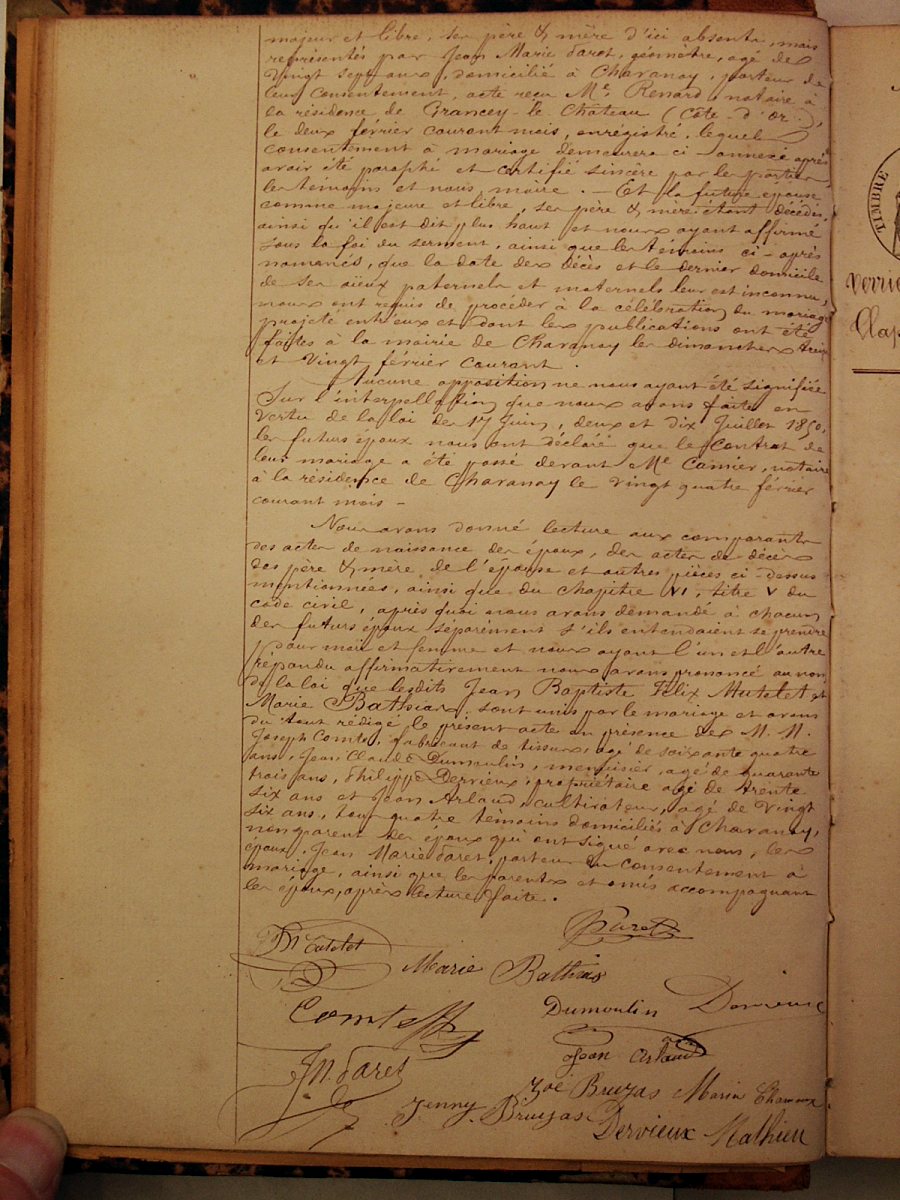 majeur et libre, ses père & mère d'ici absents, mais
représentés par Jean Marie Faret, géomètre, agé de
Vingt sept ans, domicilié à Chavanay, porteur de
leur consentement, acte reçu Me Renard, notaire à
la résidence de Grancey-le-Château (Côte-d'or),
le deux février courant mois, enrégistré, lequel
consentement à mariage demeurera ci-annexé après
avoir été paraphé et certifié sincère par les parties,
les témoins et nous, maire. — Et la future épouse
comme majeure et libre, ses père & mère étant décédés,
ainsi qu'il est dit plus haut et nous ayant affirmé
sous la foi du serment, ainsi que les témoins ci-après
nommés, que la date des décès et le dernier domicile
de ses aïeux paternels et maternels leur est inconnu,
nous ont requis de procéder à la célébration du mariage
projeté entr'eux et dont les publications ont été
faites à la mairie de Chavanay les dimanches treize
et Vingt février courant.
Aucune opposition ne nous ayant été signifiée
Sur l'interpellation que nous avons faite en
vertu de la loi des 17 Juin, deux et dix Juillet 1850,
les futurs époux nous ont déclaré que le Contrat de
leur mariage a été passé devant Me Camier, notaire
à la résidence de Chavanay le Vingt quatre février
courant mois -
Nous avons donné lecture aux comparants
des actes de naissance des époux, des actes de décès
des père & mère de l'épouse et autres pièces ci-dessus
mentionnées, ainsi que du chapitre VI, titre V du
code civil, après quoi nous avons demandé à chacun
des futurs époux séparément s'ils entendaient se prendre
pour mari et femme et nous ayant l'un et l'autre
répondu affirmativement nous avons prononcé au nom
de la loi que lesdits Jean Baptiste Félix Mutelet et
Marie Bathias, sont unis par le mariage et avons
du tout rédigé le présent acte en présence des M. M.
Joseph Comte, fabricant de tissus, agé de soixante quatre
ans, Jean Claude Dumoulin, menuisier, agé de quarante
trois ans, Philippe Dervieux, propriétaire agé de trente
six ans et Jean Arlaud, cultivateur, agé de Vingt
six ans, tous quatre témoins domiciliés à Chavanay,
non parents des époux qui ont signé avec nous, les
époux, Jean Marie Faret, porteur du consentement à
mariage, ainsi que les parents et amis accompagnant
les époux, après lecture faite.
Mutelet
Marie Bathias
Comte
Dumoulin Dervieux
J M. Faret
Jean Arlaud
Zoé Bruyas Maria
Jenny Bruyas
Dervieux Mathieu
TIMBRE